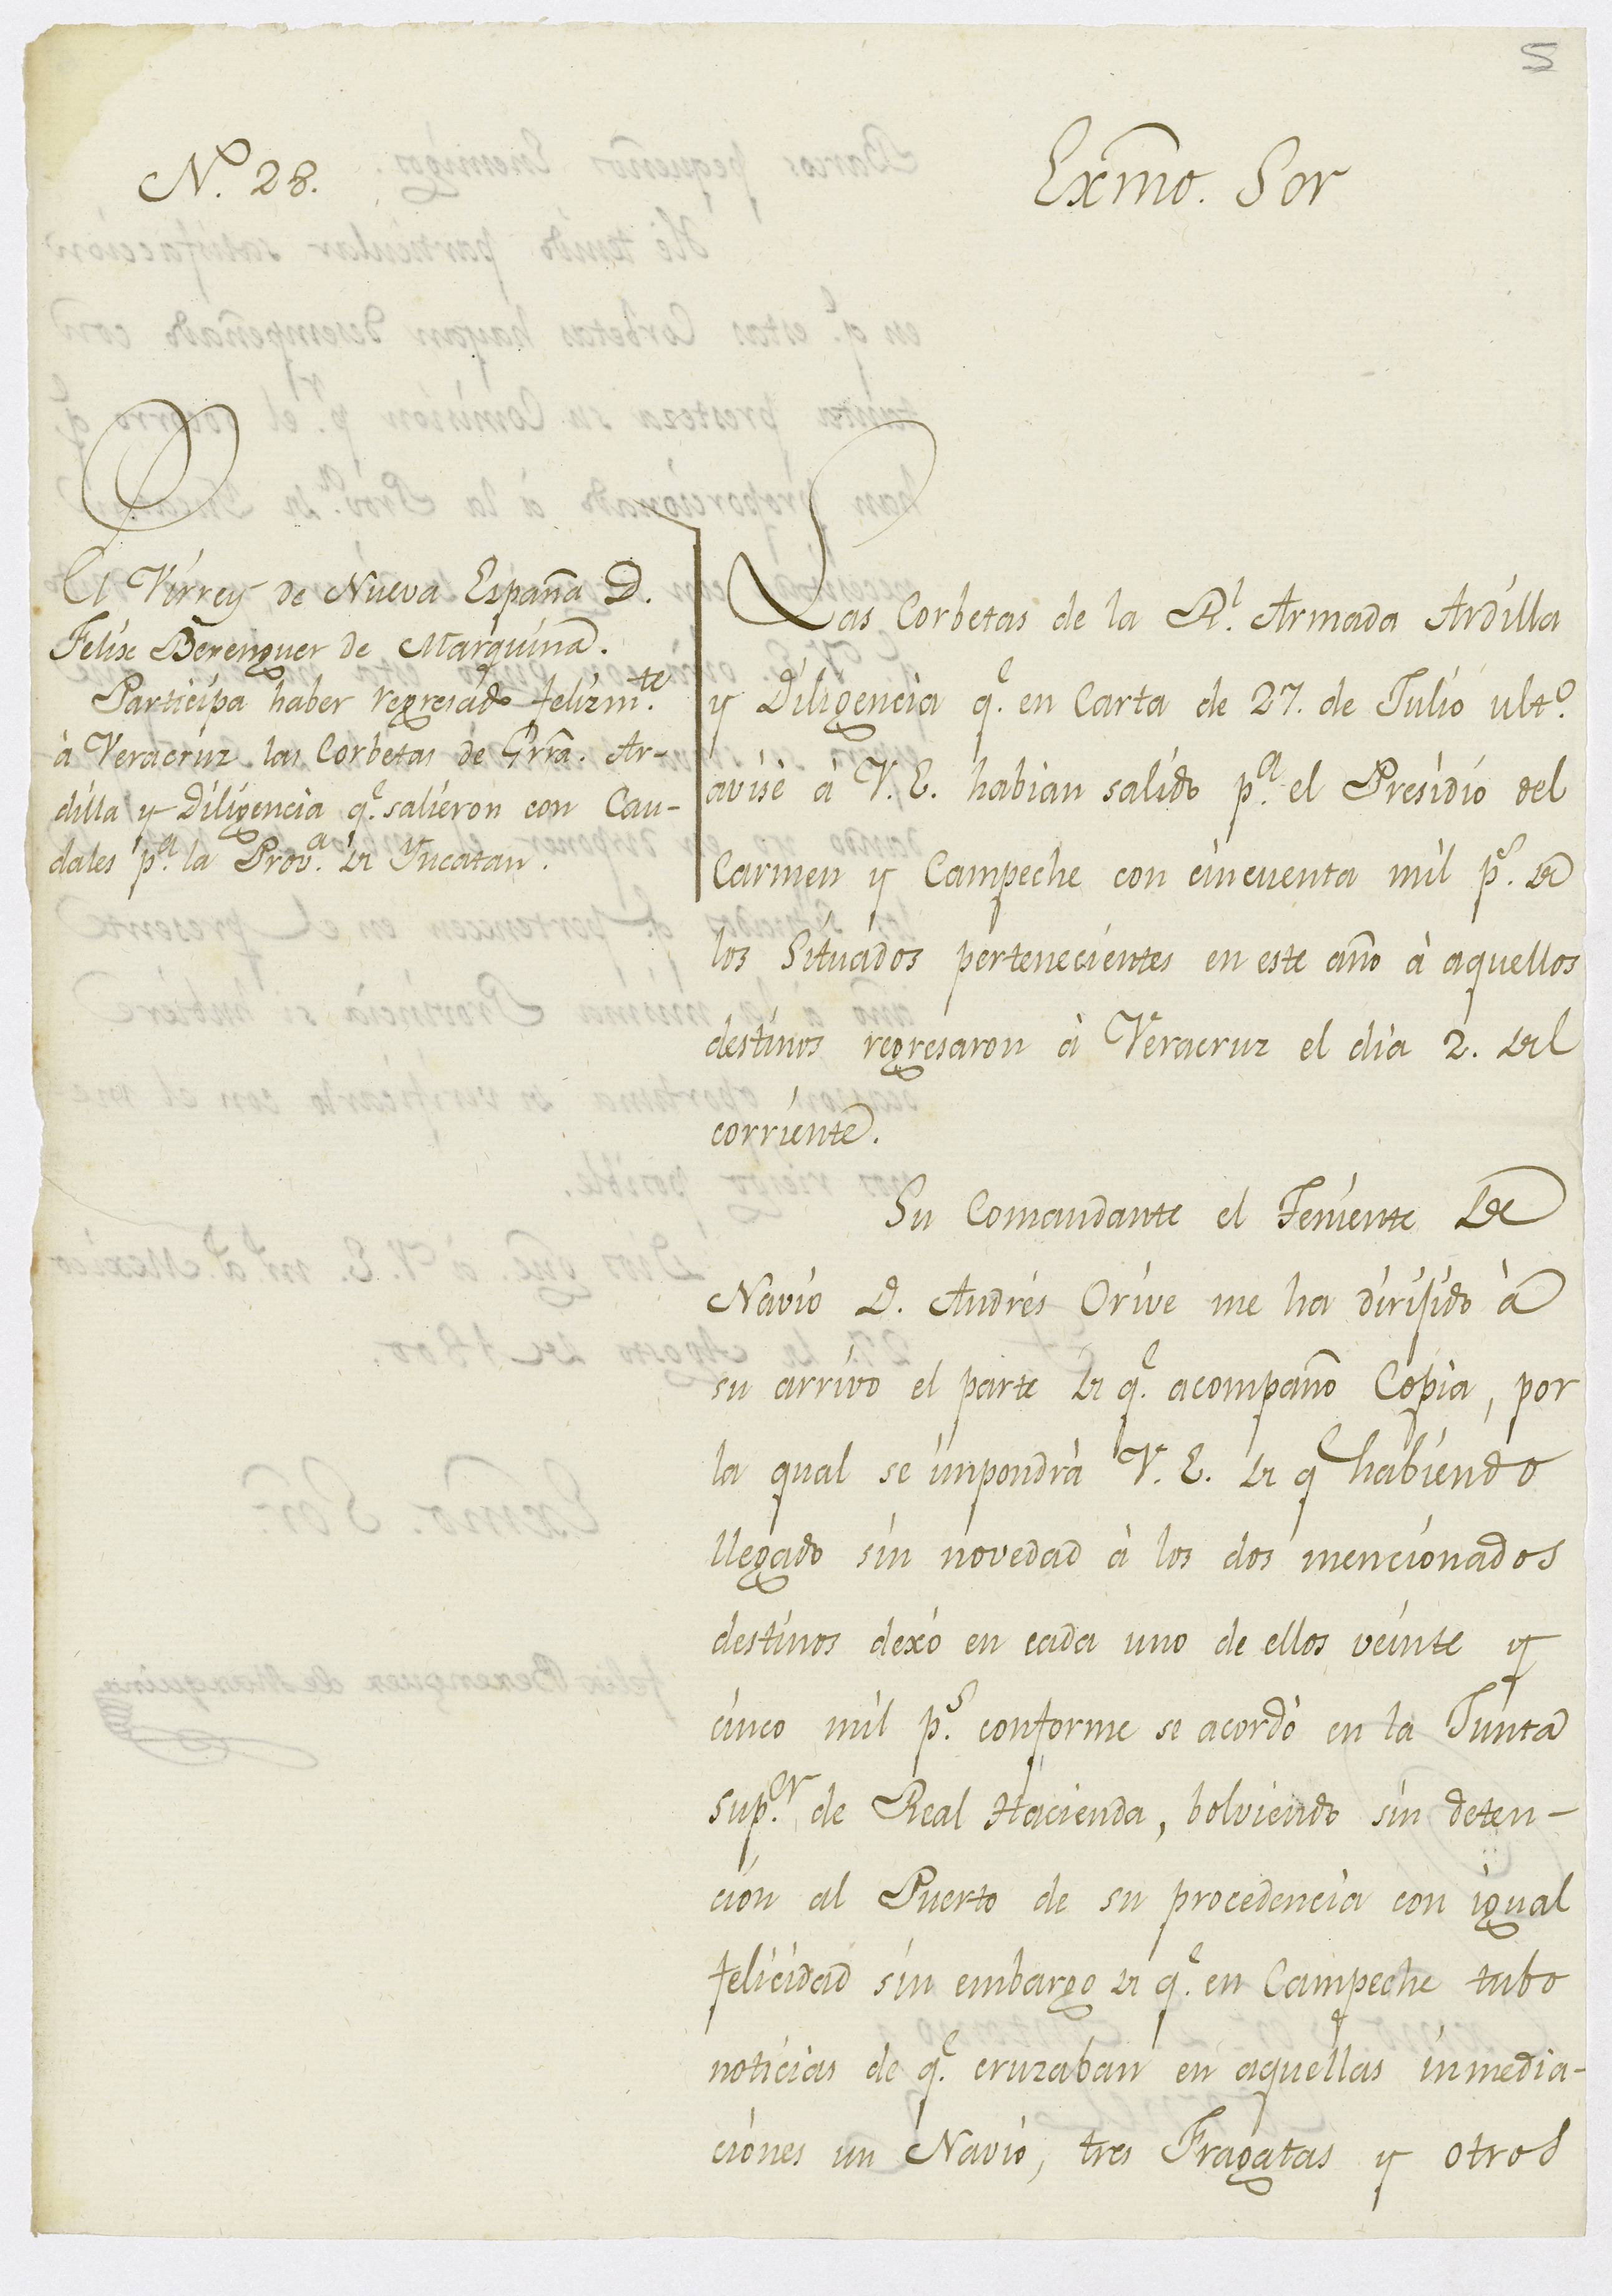 5
N.º 28.
Exmo. Sor
El Virrey de Nueva España D.
Felix Berenguer de Marquina.
Participa haber regresado felizm.te
à Veracruz las Corbetas de Grra. Ar-
dilla y Diligencia q.e salieron con Cau-
dales p.a la Prov.a de Yucatan.
Las Corbetas de la R.l Armada Ardilla
y Diligencia q.e en Carta de 27. de Julio ult.o
avisè à V. E. habian salido p.a el Presidio del
Carmen y Campeche con cincuenta mil p.s de
los Situados pertenecientes en este año à aquellos
destinos regresaron à Veracruz el dia 2. del
corriente.
Su Comandante el Teniente de
Navio D. Andrés Orive me ha dirijido à
su arrivo el parte de q.e acompaño Copia, por
la qual se impondrà V. E. de q.e habiendo
llegado sin novedad à los dos mencionados
destinos dexó en cada uno de ellos veinte y
cinco mil p.s conforme se acordó en la Junta
sup.or de Real Hacienda, bolviendo sin deten-
cion al Puerto de su procedencia con igual
felicidad sin embargo de q.e en Campeche tubo
noticias de q.e cruzaban en aquellas inmedia-
ciones un Navio, tres Fragatas y otros